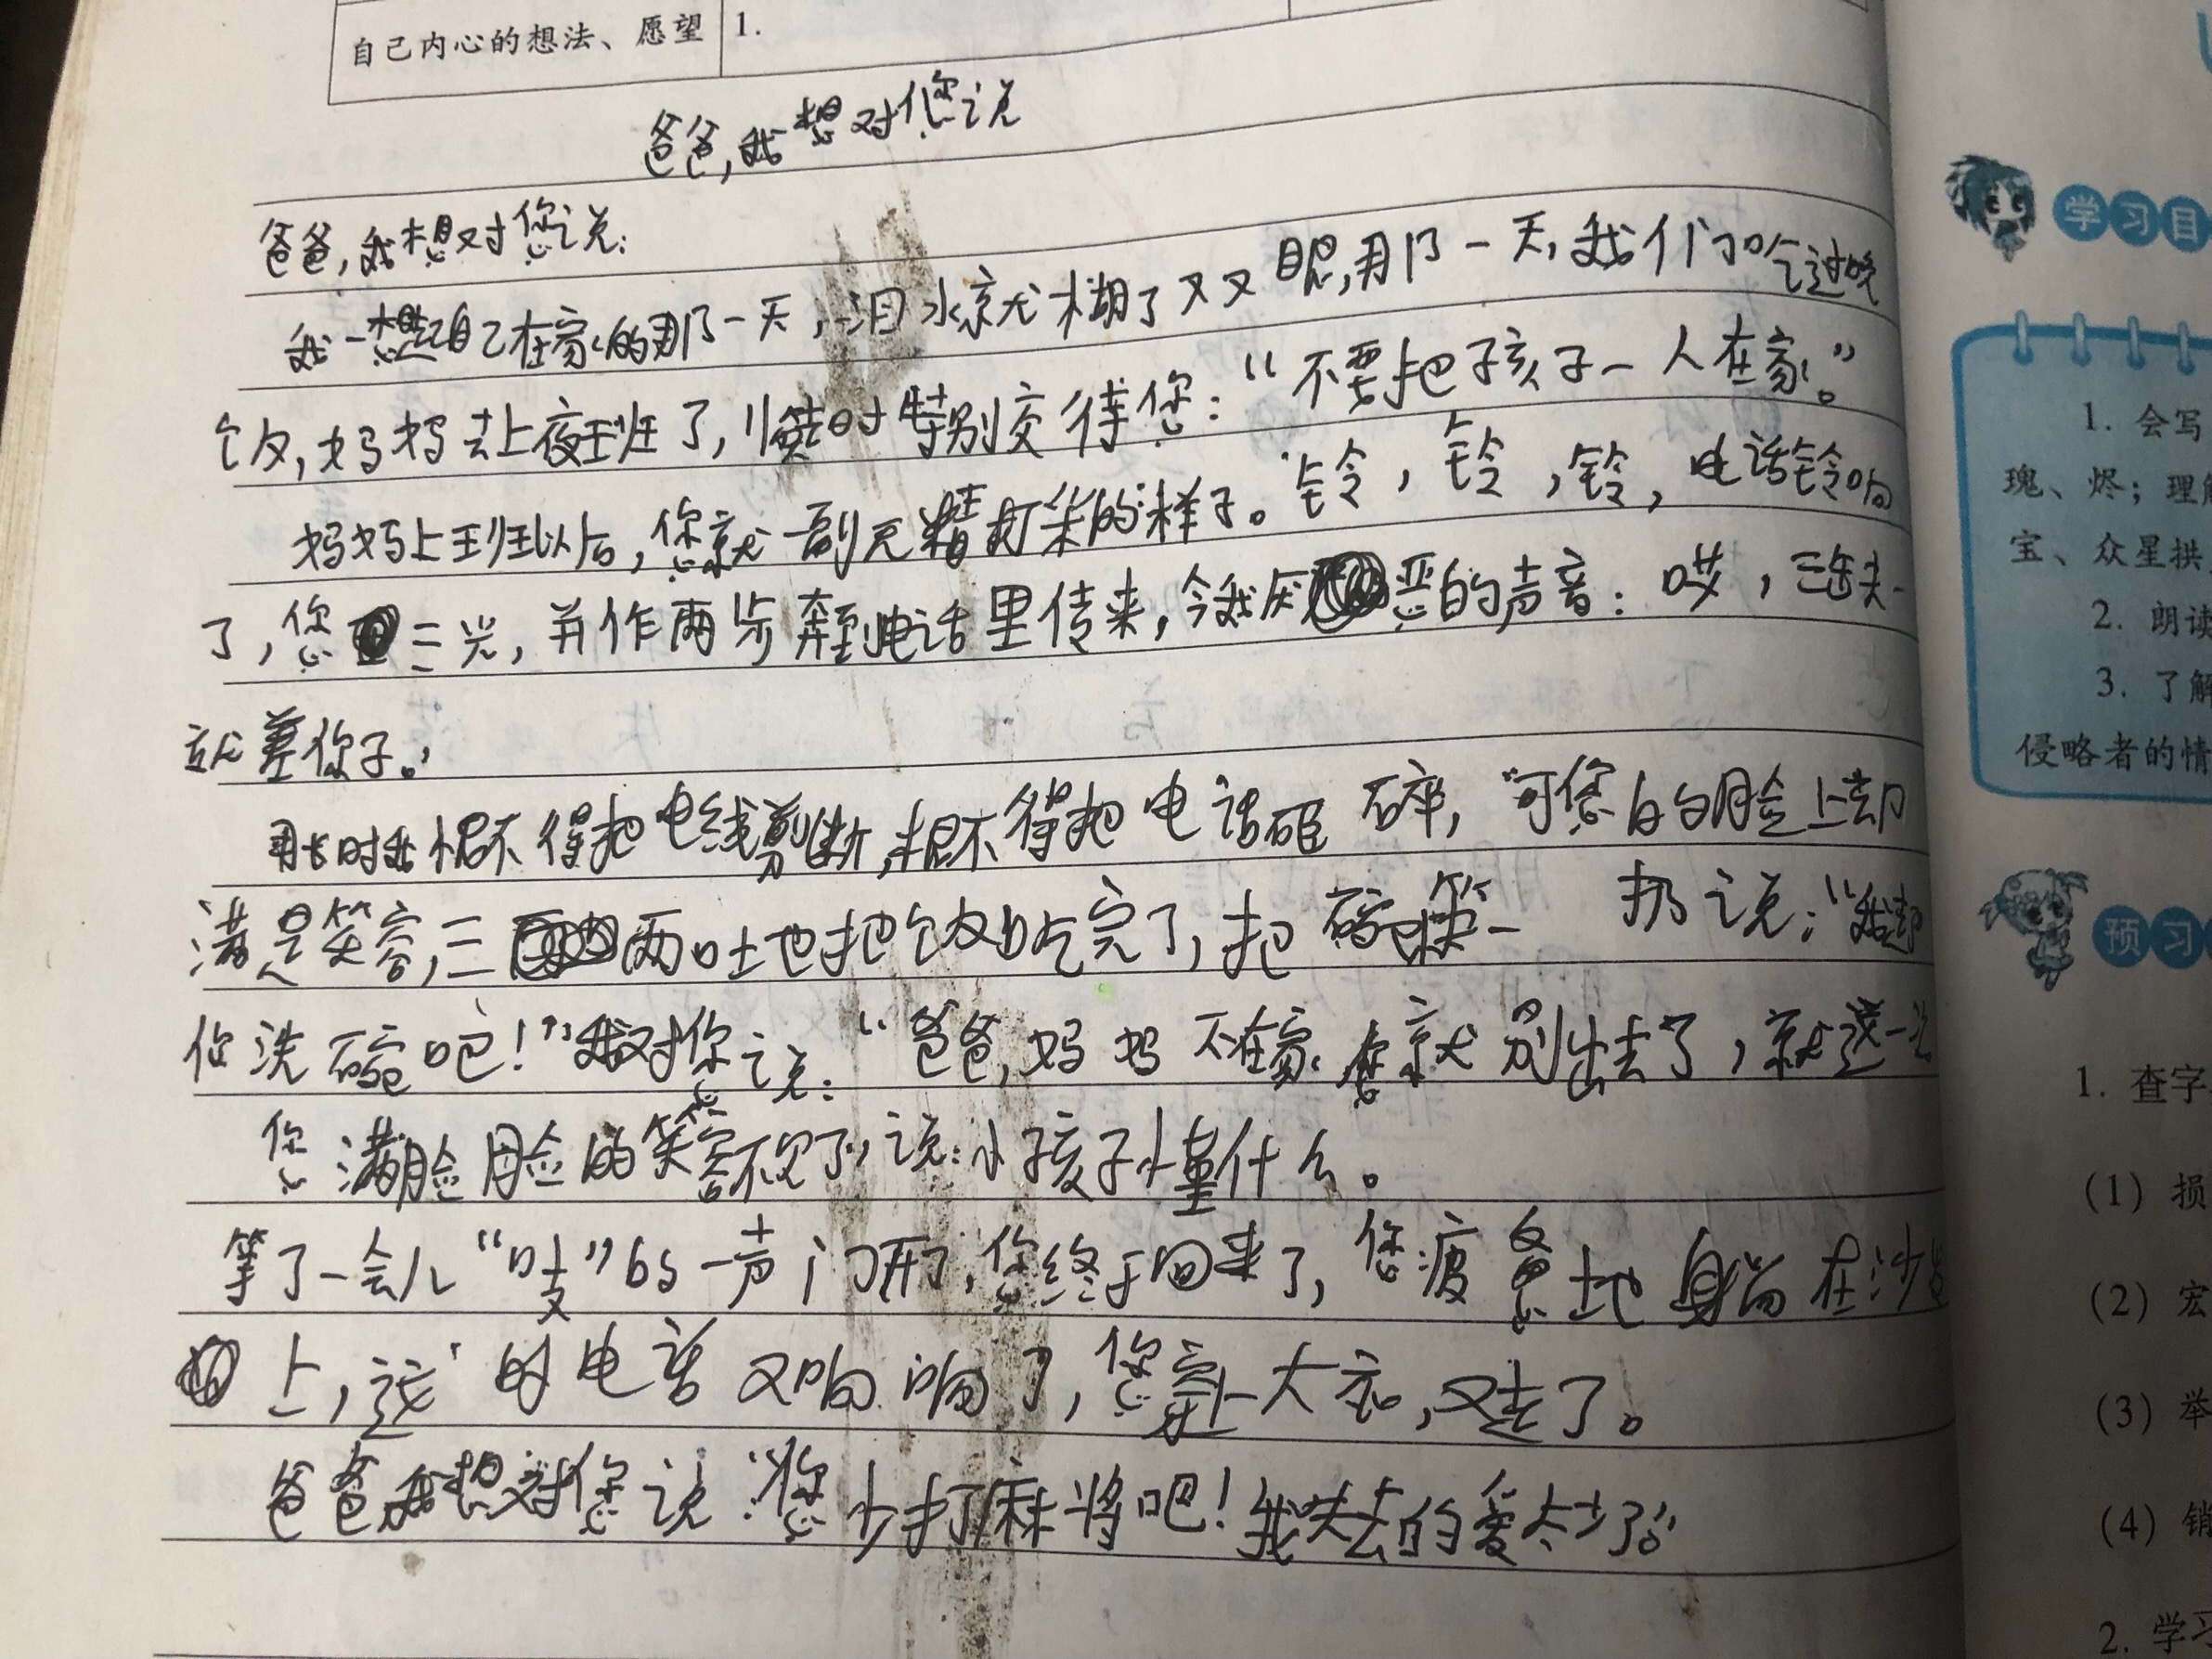 自己内心的想法、愿望 1.
爸爸,我想对您说
爸爸,我想对您说:
我一想自己在家的那一天,泪水就模糊了双眼,那一天,我们吃过晚
饭,妈妈去上夜班了,临时特别交待您:“不要把子孩子一人在家。”
妈妈上班以后,您就一副无精打采的样子。铃,铃,铃,电话铃响
了,您三半,并作两步奔到电话里传来,令我厌恶的声音:哎,三缺一
就差你了。”
那时我恨不得把电线剪断,恨不得把电话砸碎,可您的脸上却
满是笑容,三两口地把饭吃完了,把碗筷一扔说:“我走
你洗碗吧!”我对您说:“爸爸,妈妈不在家,您就别出去了,就这一次
您满脸的笑容不见了,说:小孩子懂什么。
等了一会儿“吱”的一声门开了,您终于回来了,您疲惫地躺在沙发
上,这时电话又响响了,您穿上大衣,又走了。
爸爸我想对您说:“您少打麻将吧!我失去的爱太少了。”
学习目
1. 会写
瑰、烬;理解
宝、众星拱
2. 朗读
3. 了解
侵略者的情
预习
1. 查字
(1)损
(2)宏
(3)举
(4)销
2. 学习